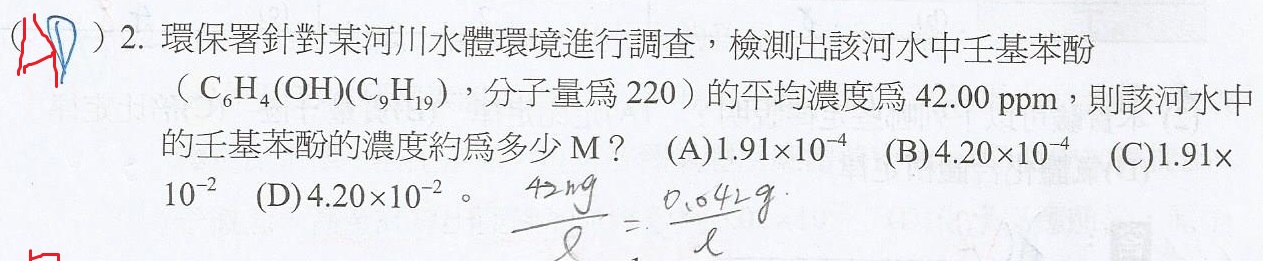 ( A D ) 2. 環保署針對某河川水體環境進行調查，檢測出該河水中壬基苯酚
（C₆H₄(OH)(C₉H₁₉)，分子量為 220）的平均濃度為 42.00 ppm，則該河水中
的壬基苯酚的濃度約為多少 M？ (A)1.91×10⁻⁴ (B)4.20×10⁻⁴ (C)1.91×
10⁻² (D)4.20×10⁻²。 42mg/l = 0.042g/l